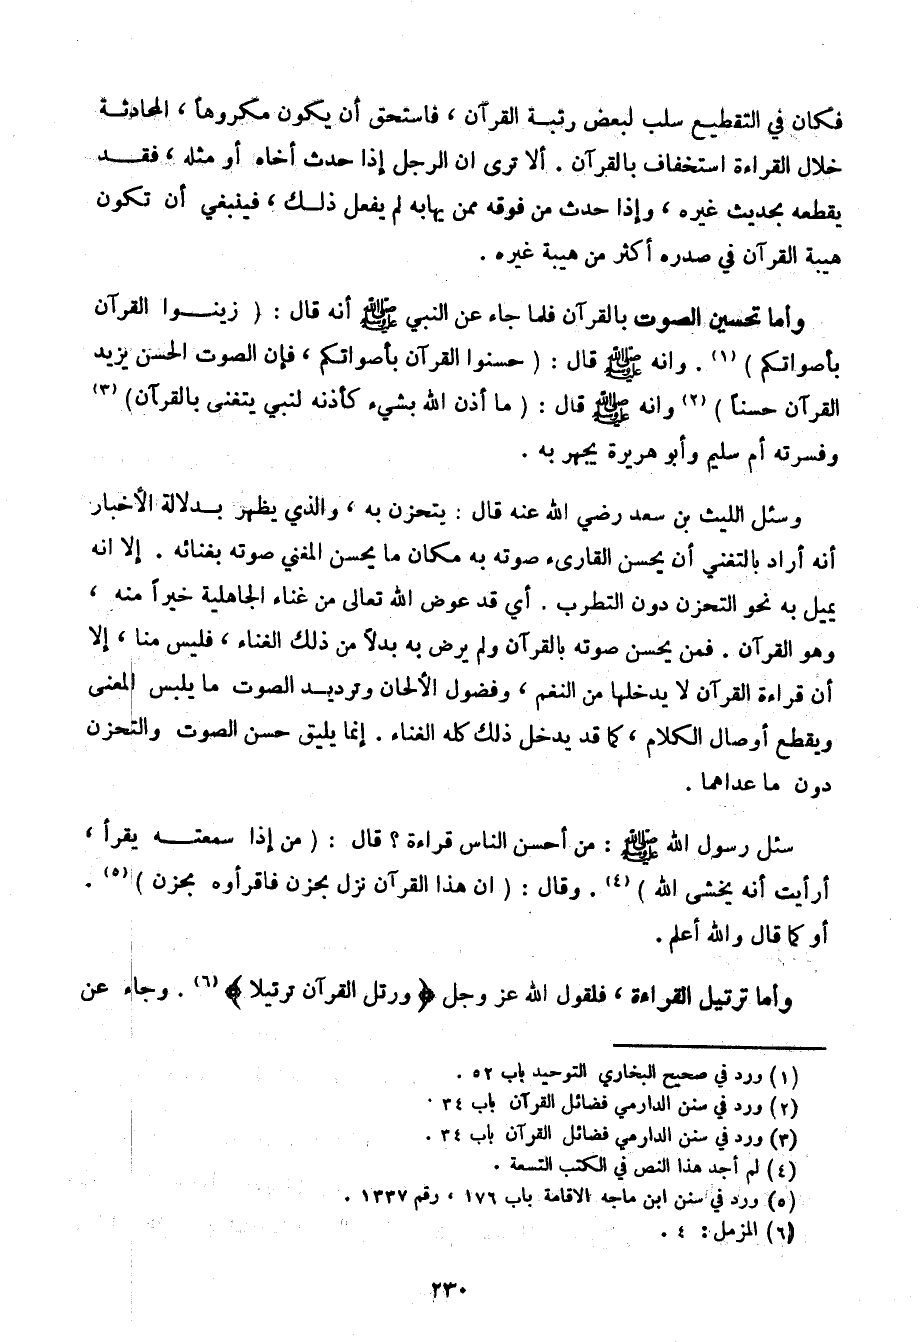 فكان في التقطيع سلب لبعض رتبة القرآن ، فاستحق أن يكون مكروهاً ، المحادثة
خلال القراءة استخفاف بالقرآن . ألا ترى ان الرجل إذا حدث أخاه أو مثله ، فقد
يقطعه بحديث غيره ، وإذا حدث من فوقه ممن يهابه لم يفعل ذلك ، فينبغي أن تكون
هيبة القرآن في صدره أكثر من هيبة غيره .
وأما تحسين الصوت بالقرآن فلما جاء عن النبي ﷺ أنه قال : ( زينوا القرآن
بأصواتكم ) (١) . وانه ﷺ قال : ( حسنوا القرآن بأصواتكم ، فإن الصوت الحسن يزيد
القرآن حسناً ) (٢) وانه ﷺ قال : ( ما أذن الله بشيء كأذنه لنبي يتغنى بالقرآن) (٣)
وفسرته أم سليم وأبو هريرة يجهر به .
وسئل الليث بن سعد رضي الله عنه قال : يتحزن به ، والذي يظهر بدلالة الأخبار
أنه أراد بالتغني أن يحسن القارىء صوته به مكان ما يحسن المغني صوته بغنائه . إلا انه
يميل به نحو التحزن دون التطرب . أي قد عوض الله تعالى من غناء الجاهلية خيراً منه ،
وهو القرآن . فمن يحسن صوته بالقرآن ولم يرض به بدلاً من ذلك الغناء ، فليس منا ، إلا
أن قراءة القرآن لا يدخلها من النغم ، وفضول الألحان وترديد الصوت ما يلبس المعنى
ويقطع أوصال الكلام ، كما قد يدخل ذلك كله الغناء . إنما يليق حسن الصوت والتحزن
دون ما عداهما .
سئل رسول الله ﷺ : من أحسن الناس قراءة ؟ قال : ( من إذا سمعته يقرأ ،
أرأيت أنه يخشى الله ) (٤) . وقال : ( ان هذا القرآن نزل بحزن فاقرأوه بحزن ) (٥) .
أو كما قال والله أعلم .
وأما ترتيل القراءة ، فلقول الله عز وجل ﴿ ورتل القرآن ترتيلا ﴾ (٦) . وجاء عن
(١) ورد في صحيح البخاري التوحيد باب ٥٢ .
(٢) ورد في سنن الدارمي فضائل القرآن باب ٣٤ .
(٣) ورد في سنن الدارمي فضائل القرآن باب ٣٤ .
(٤) لم أجد هذا النص في الكتب التسعة .
(٥) ورد في سنن ابن ماجه الاقامة باب ١٧٦ ، رقم ١٣٣٧ .
(٦) المزمل : ٤ .
٢٣٠